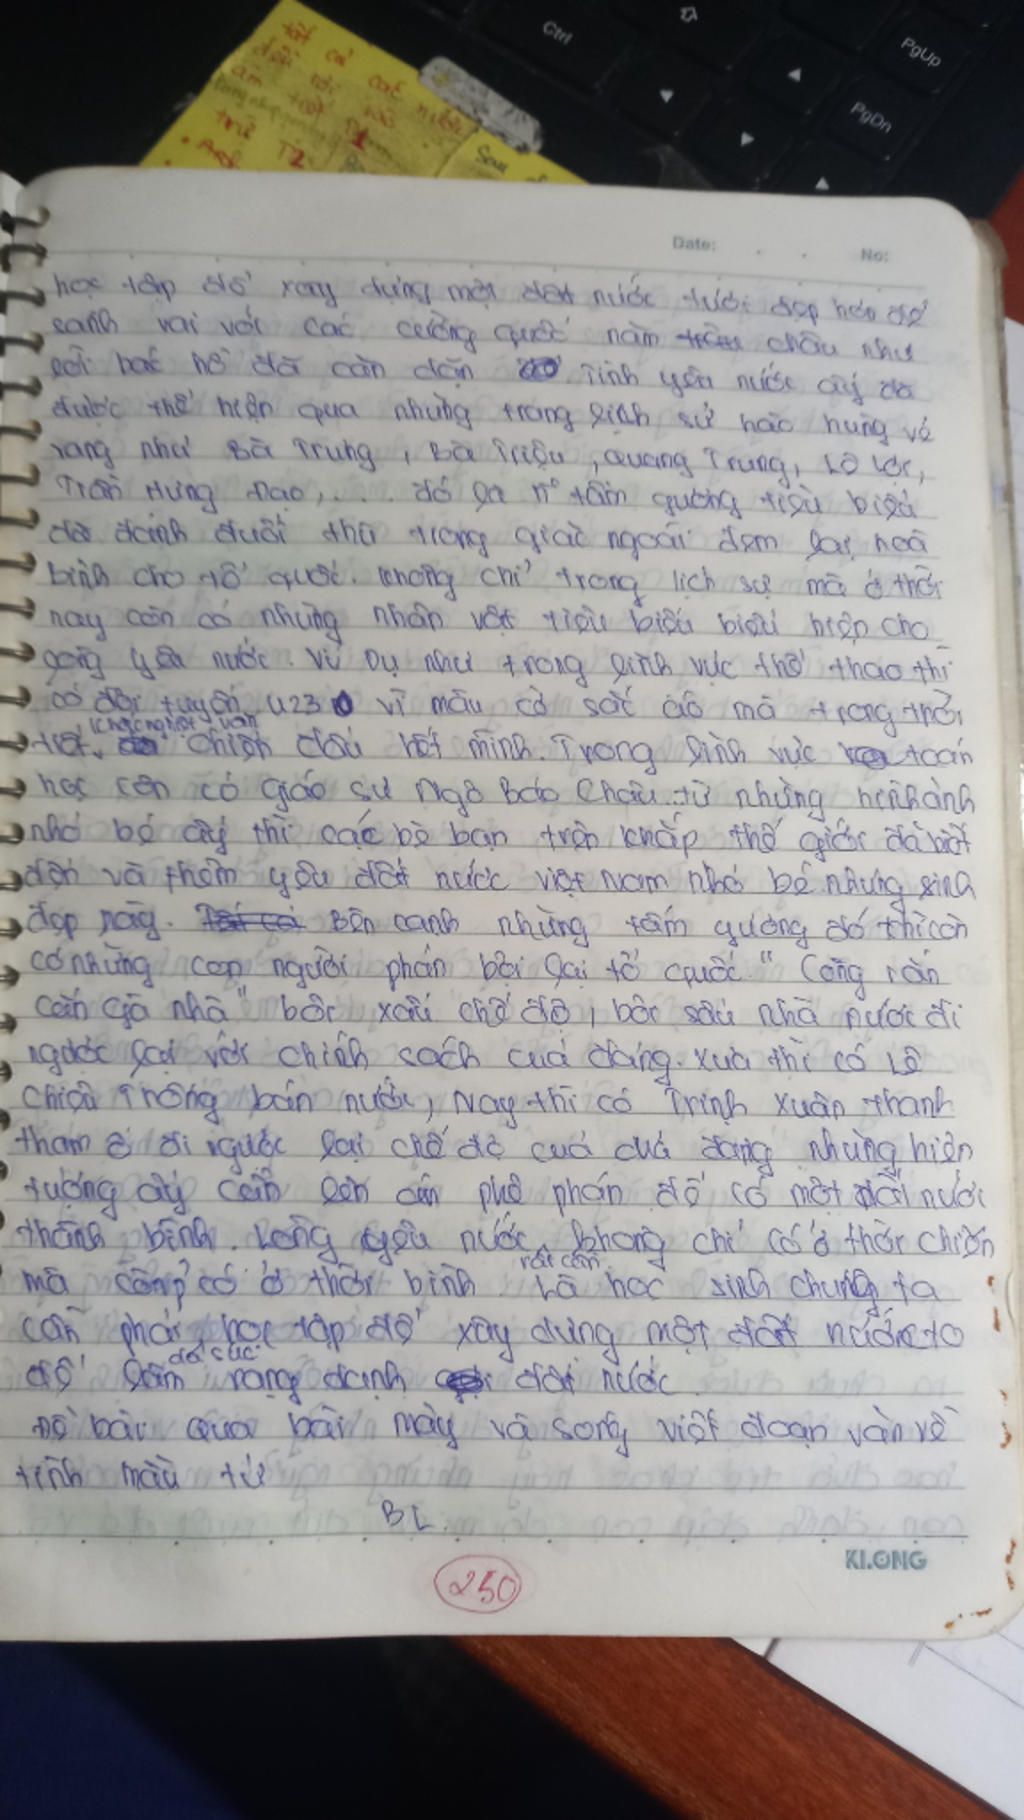 Ctrl
PgUp
PgDn
tất cả các nước
T2
Date: No:
học tập để xây dựng một đất nước tươi đẹp hơn để
sánh vai với các cường quốc năm châu như
lời bác hồ đã căn dặn Tình yêu nước ấy đã
được thể hiện qua những trang lịch sử hào hùng vẻ
vang như Bà Trưng, Bà Triệu, Quang Trung, Lê Lợi,
Trần Hưng Đạo, .... đó là n° tấm gương tiêu biểu
đã đánh đuổi thù trong giặc ngoài đem lại hoà
bình cho tổ quốc. không chỉ trong lịch sự mà ở thời
nay còn có những nhân vật tiêu biểu biểu hiện cho
lòng yêu nước. Ví Dụ như trong lĩnh vực thể thao thì
có đội tuyển U23 vì màu cờ sắc áo mà trong thời
tiết khắc nghiệt vẫn chiến đấu hết mình. Trong lĩnh vực toán
học còn có giáo sư Ngô Bảo Châu..từ những
nhỏ bé ấy thì các bè bạn trên khắp thế giới đã biết
đến và thêm yêu đất nước việt Nam nhỏ bé nhưng sinh
đẹp này. Bên cạnh những tấm gương đó thì còn
có những con người phản bội lại tổ quốc. " Cõng rắn
cắn gà nhà " bôi xấu chế độ, bôi xấu nhà nước đi
ngược lại với chính sách của đảng. xưa thì có Lê
Chiêu Thống bán nước, Nay thì có Trịnh Xuân thanh
tham ô đi ngược lại chế độ của của đảng những hiện
tượng ấy cần lên án phê phán để có một đất nước
thanh bình. Lòng yêu nước không chỉ có ở thời chiến
mà còn có ở thời bình rất cần Là học sinh chúng ta
cần phải học tập để xây dựng một đất nước to
để làm rạng danh đất nước
Đề bài Qua bài mây và sóng viết đoạn văn về
tình mẫu tử
BL
KLONG
250